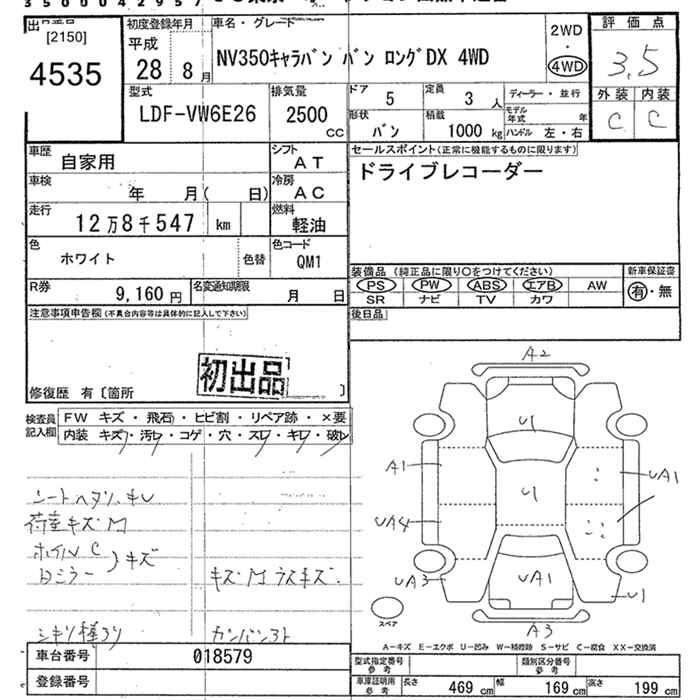 3 5 0 0 0 4 2 9 5 7
出品番号 初度登録年月 車名・グレード 2WD 評価点
[2150] 平成 ・
4535 28 8月 NV350キャラバン バン ロングDX 4WD 4WD 3.5
型式 排気量 ドア 5 定員 3人 ディーラー・並行 外装 内装
LDF-VW6E26 2500cc 形状 バン 積載 1000kg モデル年式 年 C C
ハンドル 左・右
車歴 自家用 シフト AT セールスポイント(正常に機能するものに限ります)
車検 年 月( 日) 冷房 AC ドライブレコーダー
走行 12万8千547 km 燃料 軽油
色 ホワイト 色替 色コード QM1
装備品 (純正品に限り○をつけてください) 新車保証書
R券 9,160円 名変通知期限 月 日 PS PW ABS エアB AW 有・無
SR ナビ TV カワ
注意事項申告欄(不具合内容等は具体的に記入して下さい) 後日品
初出品
修復歴 有〔箇所 〕
検査員記入欄 FW キズ・飛石・ヒビ割・リペア跡・×要
内装 キズ・汚レ・コゲ・穴・スレ・キレ・破レ
A2
U1
A1 UA1
U1
UA4
シートヘタリ、キレ
荷室キズM
ホイルC キズ
Dミラー キズM ラスキズ.
UA3 UA1 U1
スペア A3
A-キズ E-エクボ U-凹み W-補修跡 S-サビ C-腐食 XX-交換済
車台番号 018579 型式指定番号参考 類別区分番号参考
登録番号 車庫証明用参考 長さ 469cm 幅 169cm 高さ 199cm